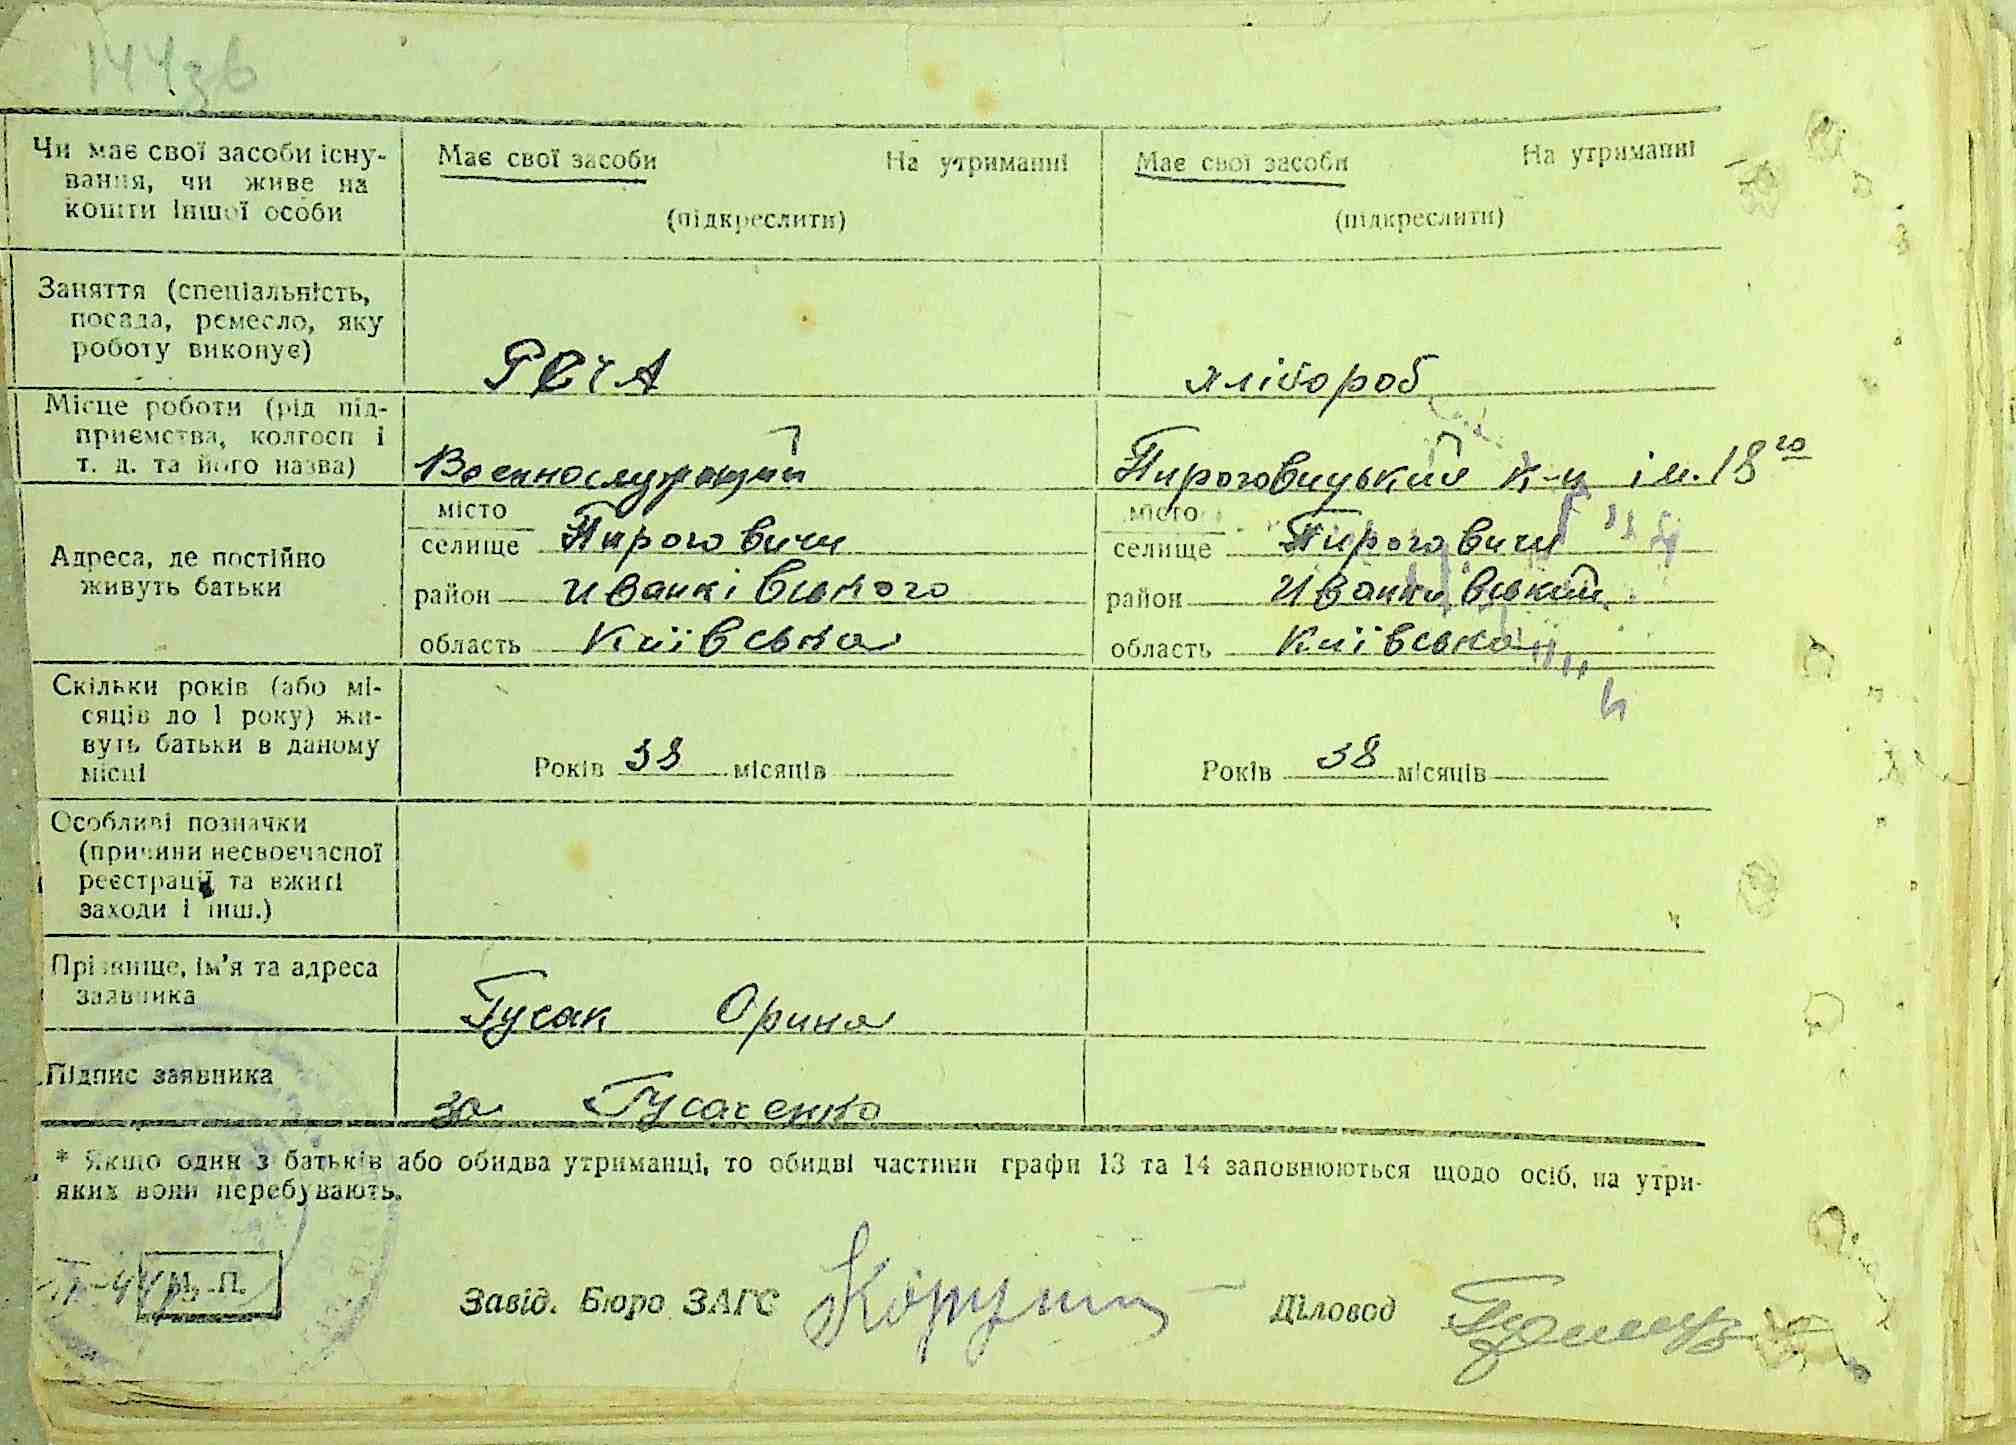 144зв
Чи має свої засоби існу-
вання, чи живе на
кошти іншої особи
Має свої засоби На утриманні
(підкреслити)
Має свої засоби На утриманні
(підкреслити)
Заняття (спеціальність,
посада, ремесло, яку
роботу виконує)
РСЧА
хлібороб
Місце роботи (рід під-
приємства, колгосп і
т. д. та його назва)
Военнослужащий
Пироговицький к-п ім. 18го
Адреса, де постійно
живуть батьки
місто
селище Пироговичи
район Иванківського
область Київська
місто
селище Пироговичи
район Иванківський
область Київська
Скільки років (або мі-
сяців до 1 року) жи-
вуть батьки в даному
місці
Років 38 місяців
Років 38 місяців
Особливі позначки
(причини несвоєчасної
реєстрації та вжиті
заходи і інш.)
Прізвище, ім'я та адреса
заявника
Гусак Орина
Підпис заявника
за Гусаченко
* Якщо один з батьків або обидва утриманці, то обидві частини графи 13 та 14 заповнюються щодо осіб, на утри-
яких вони перебувають.
М. П.
Завід. Бюро ЗАГС
Діловод